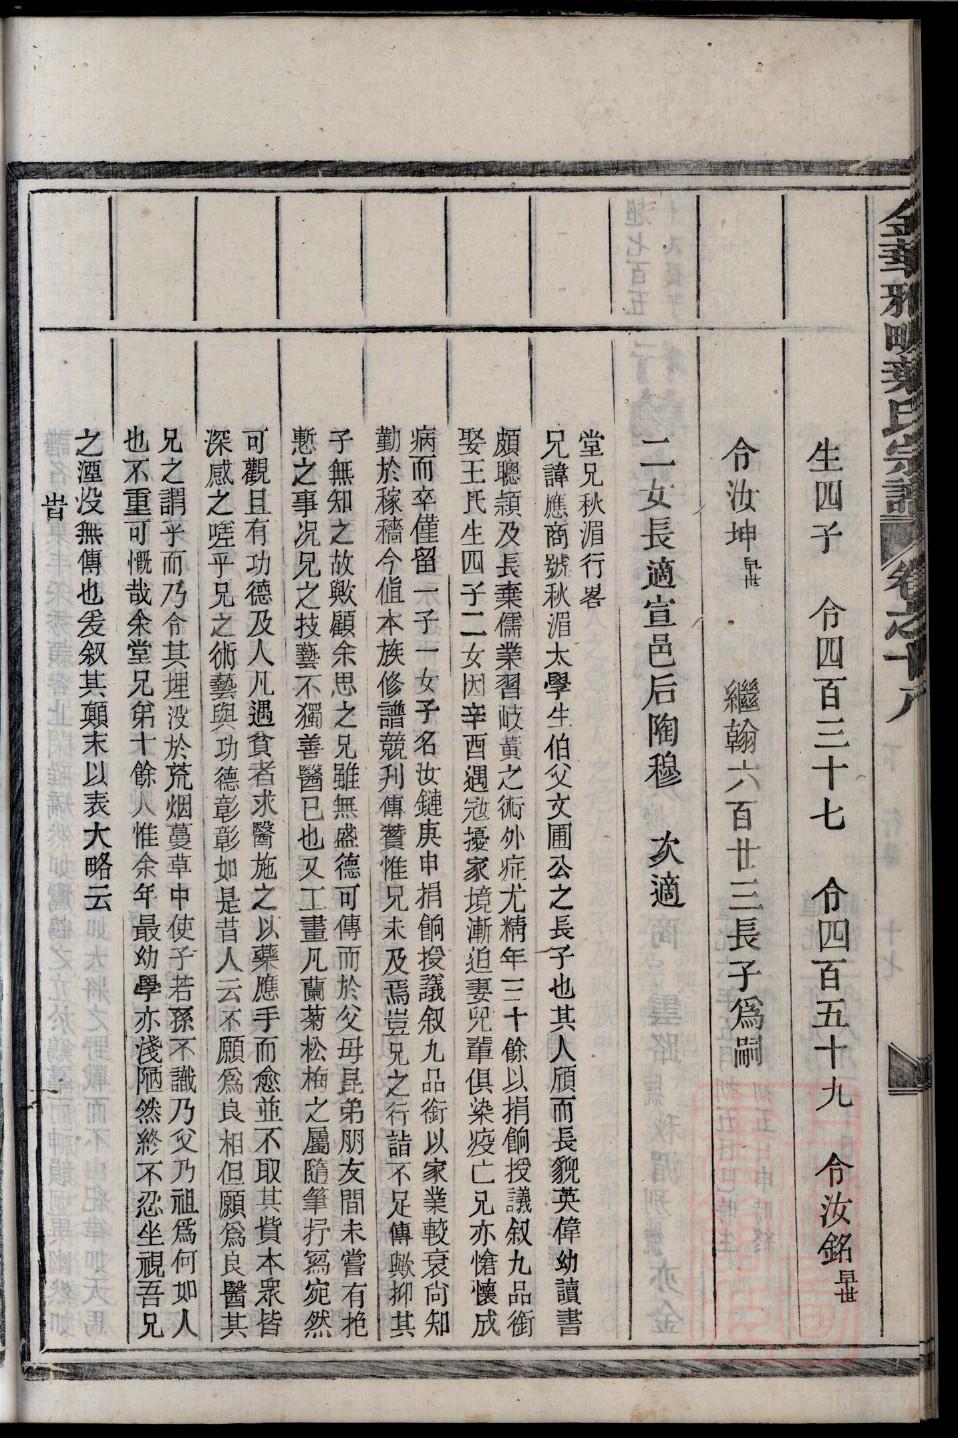 金華雅畈葉氏宗譜 卷之十八
生四子 令四百三十七 令四百五十九 令汝銘早世
令汝坤早世 繼翰六百廿三長子爲嗣
二女長適宣邑后陶穆 次適
堂兄秋湄行畧
兄諱應商號秋湄太學生伯父文圃公之長子也其人頎而長貌英偉幼讀書
頗聰頴及長棄儒業習岐黃之術外症尤精年三十餘以捐餉授議叙九品銜
娶王氏生四子二女因辛酉遇冦擾家境漸迫妻兒輩俱染疫亡兄亦愴懷成
病而卒僅留一子一女子名汝鏈庚申捐餉授議叙九品銜以家業較衰尙知
勤於稼穡今值本族修譜競刋傳贊惟兄未及焉豈兄之行詣不足傳歟抑其
子無知之故歟顧余思之兄雖無盛德可傳而於父母昆弟朋友間未嘗有抱
慙之事况兄之技藝不獨善醫已也又工畫凡蘭菊松梅之屬隨筆抒寫宛然
可觀且有功德及人凡遇貧者求醫施之以藥應手而愈並不取其貲本衆皆
深感之嗟乎兄之術藝與功德彰彰如是昔人云不願爲良相但願爲良醫其
兄之謂乎而乃令其埋没於荒烟蔓草中使子若孫不識乃父乃祖爲何如人
也不重可慨哉余堂兄弟十餘人惟余年最幼學亦淺陋然終不忍坐視吾兄
之湮没無傳也爰叙其顛末以表大略云
旹